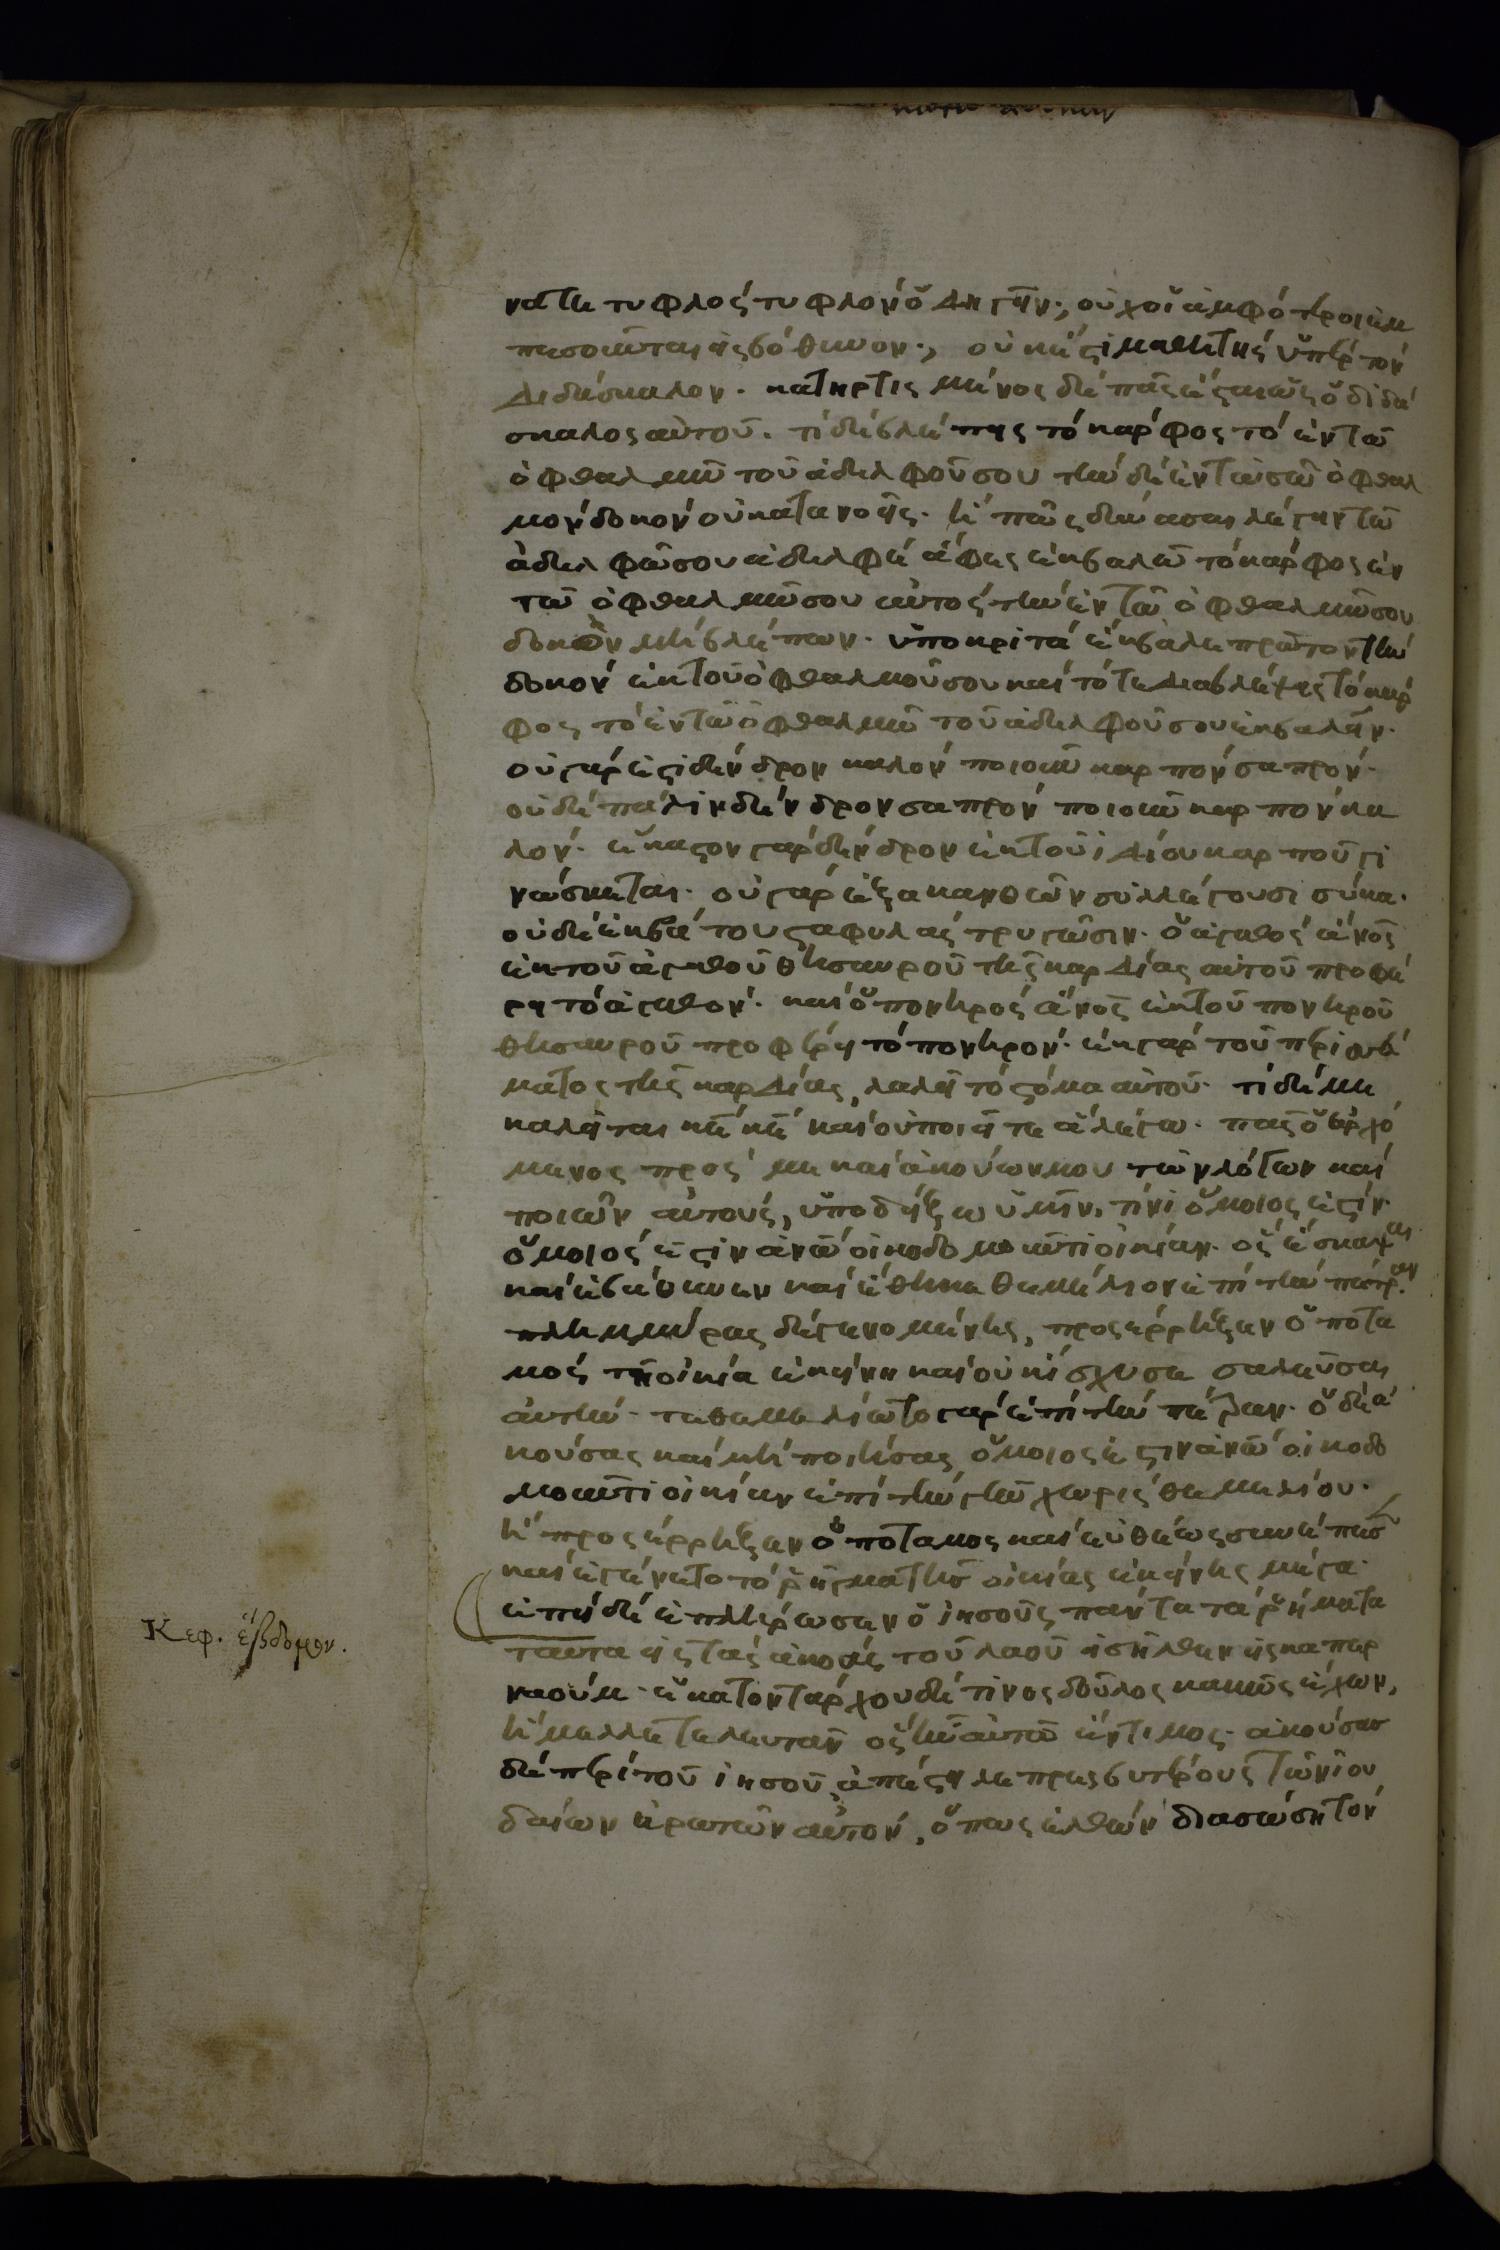 ναται τυφλὸς τυφλὸν ὁδηγεῖν; οὐχοὶ ἀμφότεροι ἐμ
πεσοῦνται εἰς βόθυνον; οὐκ ἔστι μαθητὴς ὑπὲρ τὸν
διδάσκαλον. κατηρτισμένος δὲ πᾶς ἔσται ὡς ὁ διδά
σκαλος αὐτοῦ. τί δὲ βλέπεις τὸ κάρφος τὸ ἐν τῶ
ὀφθαλμῶ τοῦ ἀδελφοῦ σου τὴν δὲ ἐν τῶ σῶ ὀφθαλ
μὸν δοκὸν οὐ κατανοεῖς. ἢ πῶς δύνασαι λέγειν τῶ
ἀδελφῶ σου ἀδελφὲ ἄφες ἐκβαλῶ τὸ κάρφος ἐν
τῶ ὀφθαλμῶ σου αὐτὸς τὴν ἐν τῶ ὀφθαλμῶ σου
δοκὸν μὴ βλέπων. ὑποκριτὰ ἔκβαλε πρῶτον τὴν
δοκὸν ἐκ τοῦ ὀφθαλμοῦ σου καὶ τότε διαβλέψεις τὸ κάρ
φος τὸ ἐν τῶ ὀφθαλμῶ τοῦ ἀδελφοῦ σου ἐκβαλεῖν.
οὐ γάρ ἐστι δένδρον καλὸν ποιοῦν καρπὸν σαπρὸν.
οὐδὲ πάλιν δένδρον σαπρὸν ποιοῦν καρπὸν κα
λόν. ἕκαστον γὰρ δένδρον ἐκ τοῦ ἰδίου καρποῦ γι
νώσκεται. οὐ γὰρ ἐξ ακανθῶν συλλέγουσι σύκα.
οὐδὲ ἐκ βάτου σταφυλὰς τρυγῶσιν. ὁ ἀγαθὸς ἄνος
ἐκ τοῦ ἀγαθοῦ θησαυροῦ τῆς καρδίας αὐτοῦ προφέ
ρει τὸ ἀγαθόν. καὶ ὁ πονηρὸς ἄνος ἐκ τοῦ πονηροῦ
θησαυροῦ προφέρει τὸ πονηρόν. ἐκ γὰρ τοῦ περισσεύ
ματος τῆς καρδίας, λαλεῖ τὸ στόμα αὐτοῦ. τί δέ με
καλεῖται κε κε καὶ οὐ ποιεῖτε ἃ λέγω. πᾶς ὁ ἐρχό
μενος πρός με καὶ ἀκούων μου τῶν λόγων καὶ
ποιῶν αὐτοὺς, ὑποδείξω ὑμῖν, τίνι ὅμοιος ἐστίν.
ὅμοιός ἐστιν ἀνω οἰκοδομοῦντι οἰκίαν. ὃς ἔσκαψεν
καὶ ἐβάθυνεν καὶ ἔθηκε θεμέλιον ἐπὶ τὴν πέτραν.
πλημμύρας δὲ γενομένης, προσέρρηξεν ὁ ποτα
μὸς τῆ οἰκία ἐκείνη καὶ οὐκ ἴσχυσε σαλεῦσαι
αὐτὴν. τεθεμελίωτο γὰρ ἐπὶ τὴν πέτραν. ὁ δὲ ἀ
κούσας καὶ μὴ ποιήσας ὅμοιος ἐστιν ἀνω οἰκοδο
μοῦντι οἰκίαν ἐπὶ τὴν γῆν χωρὶς θεμελίου.
ἣ προσέρρηξεν ὁ ποταμος καὶ εὐθέως συνέπεσε
καὶ ἐγένετο τὸ ῥῆγμα τῆς οἰκίας ἐκείνης μέγα.
ἐπεὶ δὲ ἐπλήρωσεν ὁ ἰησοῦς πάντα τὰ ῥήματα
ταῦτα εἰς τὰς ἀκοὰς τοῦ λαοῦ εἰσῆλθεν εἰς καπερ
ναούμ. ἑκατοντάρχου δέ τινος δοῦλος κακῶς ἔχων,
ἤμελλε τελευτᾶν ὃς ἦν αὐτῶ ἔντιμος. ἀκούσας
δὲ περὶ τοῦ ἰησοῦ, ἀπέστειλε πρεσβυτέρους τῶν ἰου
δαίων ἐρωτῶν αὐτόν, ὅπως ἐλθὼν διασώση τὸν
Κεφ. ἕβδομον.